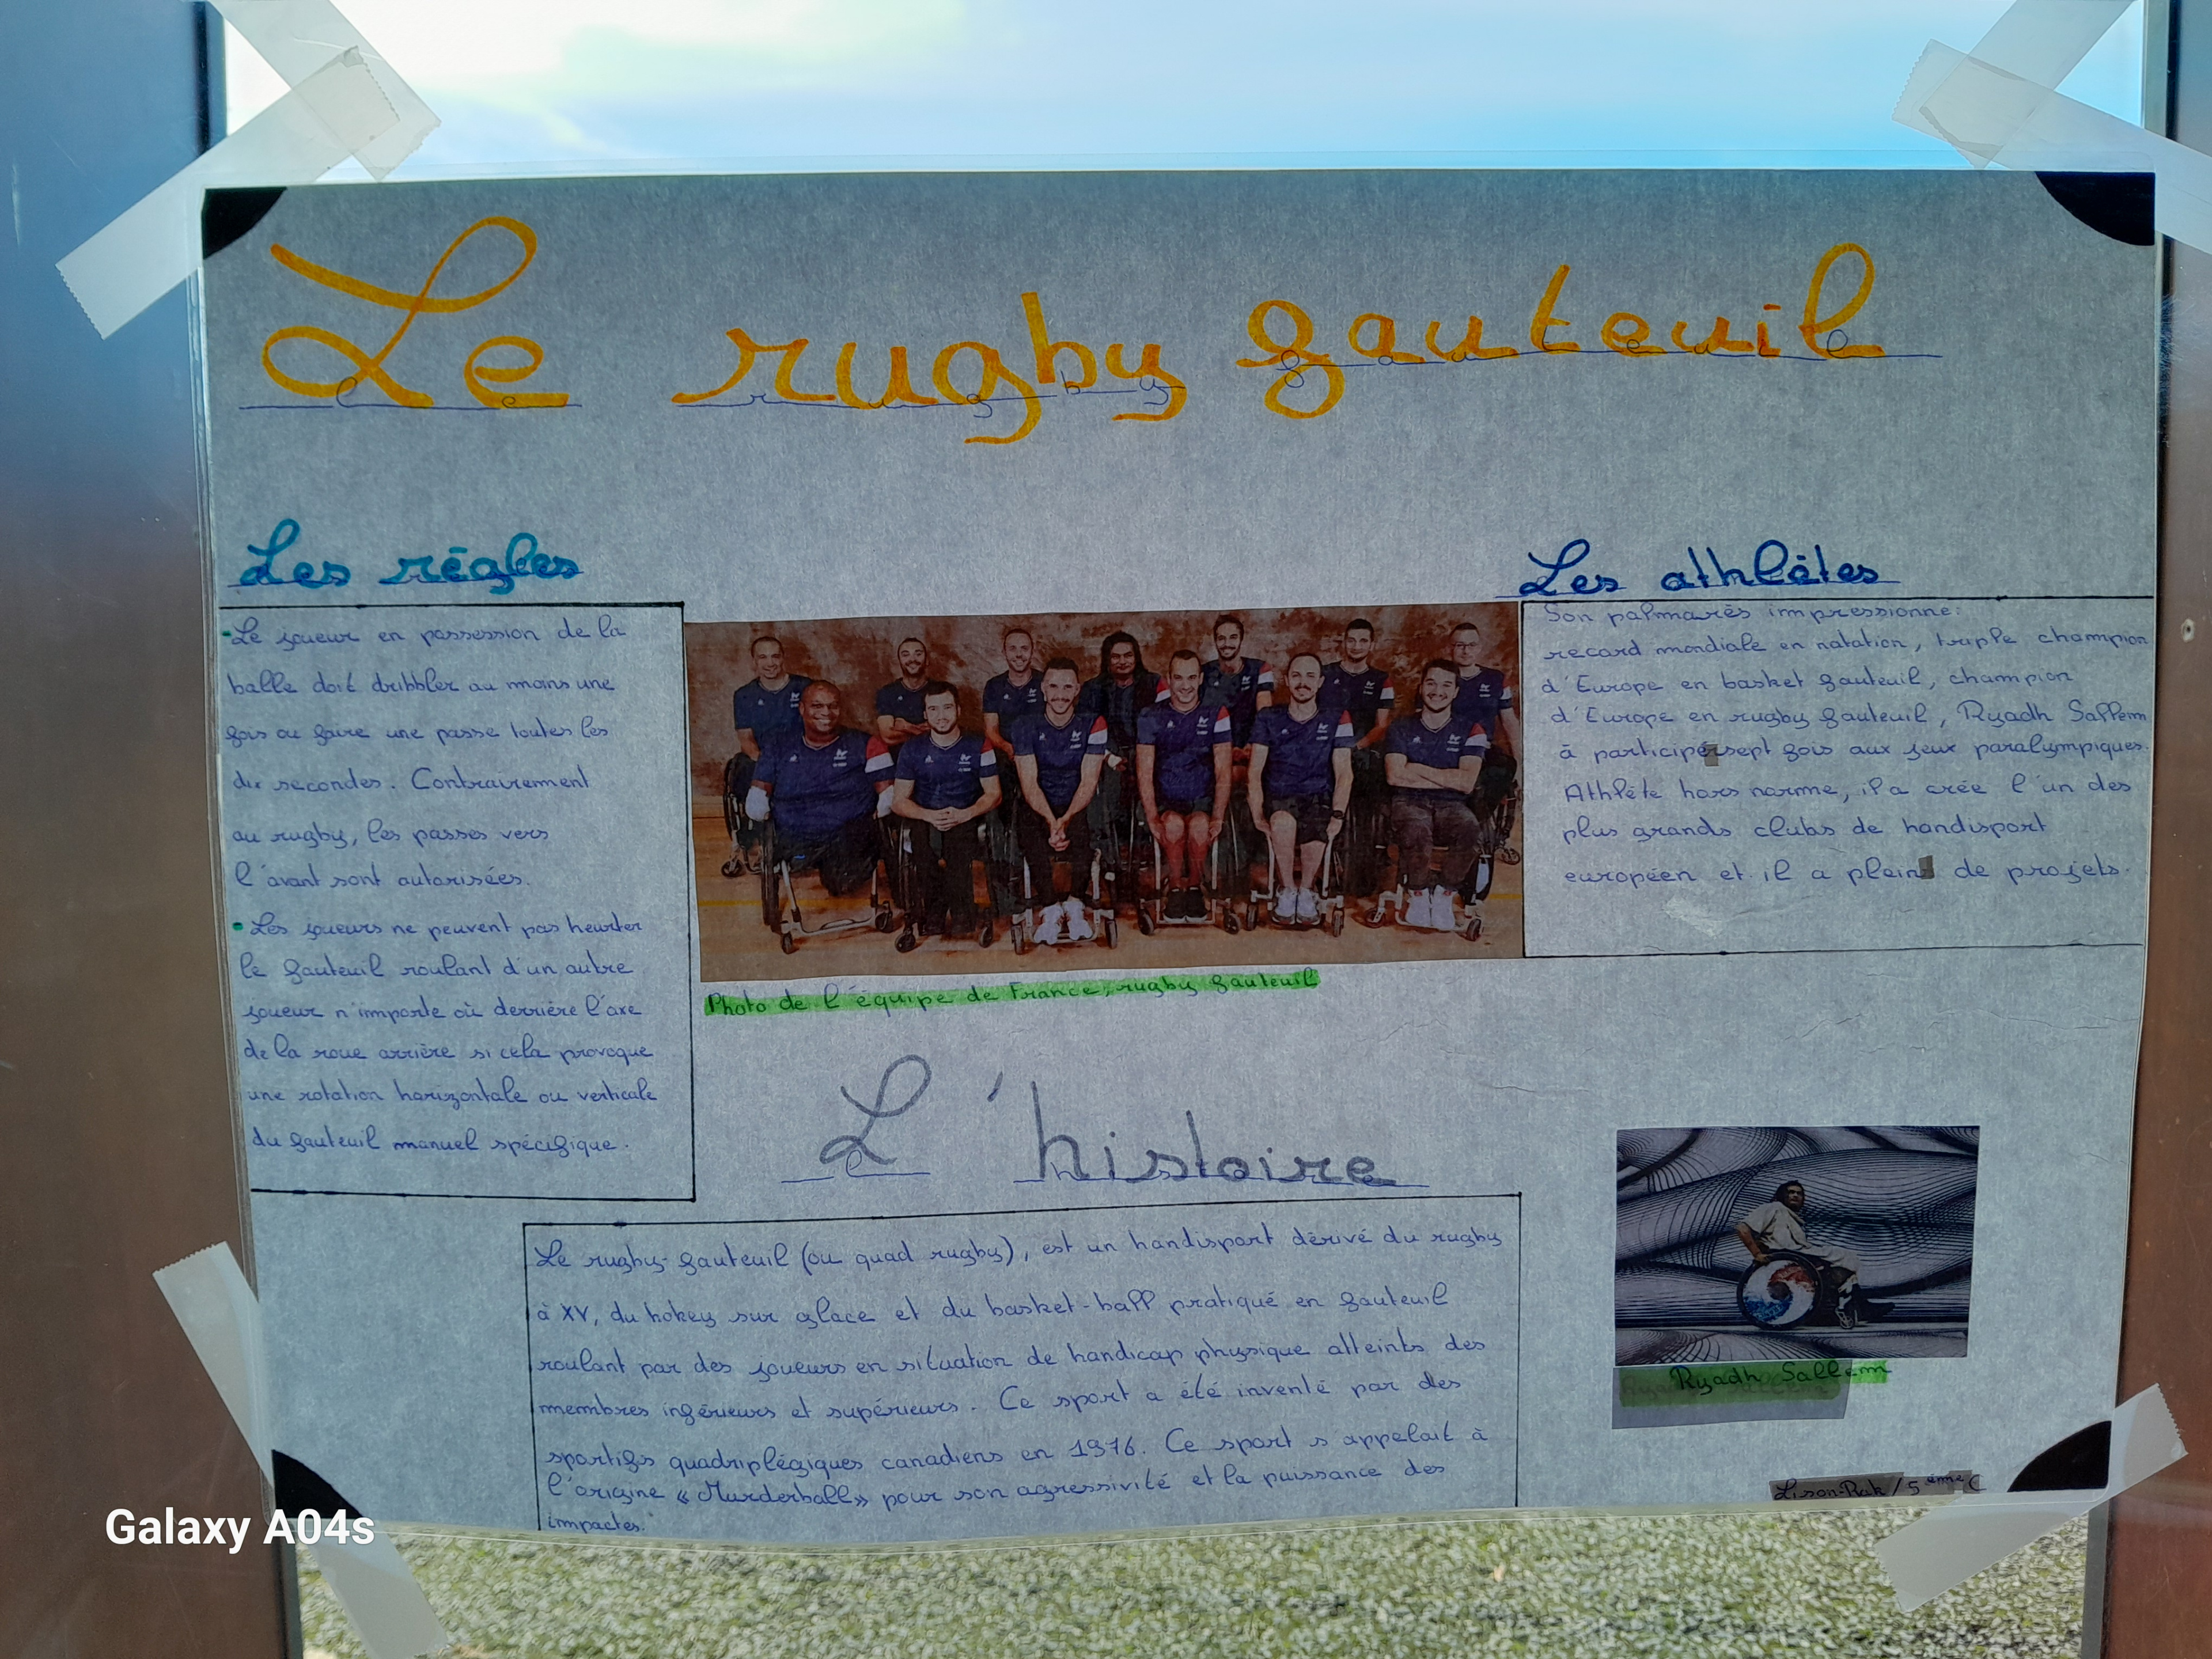 Le rugby fauteuil
Les règles
•Le joueur en possession de la
balle doit dribbler au moins une
fois ou faire une passe toutes les
dix secondes. Contrairement
au rugby, les passes vers
l'avant sont autorisées.
•Les joueurs ne peuvent pas heurter
le fauteuil roulant d'un autre
joueur n'importe où derrière l'axe
de la roue arrière si cela provoque
une rotation horizontale ou verticale
du fauteuil manuel spécifique.
Photo de l'équipe de France, rugby fauteuil
Les athlètes
Son palmarès impressionne:
record mondiale en natation, triple champion
d'Europe en basket fauteuil, champion
d'Europe en rugby fauteuil, Ryadh Sallem
à participé sept fois aux jeux paralympiques.
Athlète hors norme, il a crée l'un des
plus grands clubs de handisport
européen et il a plein de projets.
L'histoire
Le rugby-fauteuil (ou quad rugby), est un handisport dérivé du rugby
à XV, du hokey sur glace et du basket-ball pratiqué en fauteuil
roulant par des joueurs en situation de handicap physique atteints des
membres inférieurs et supérieurs. Ce sport a été inventé par des
sportifs quadriplégiques canadiens en 1976. Ce sport s'appelait à
l'origine «Murderball» pour son agressivité et la puissance des
impactes.
Ryadh Sallem
/5ème C
Galaxy A04s